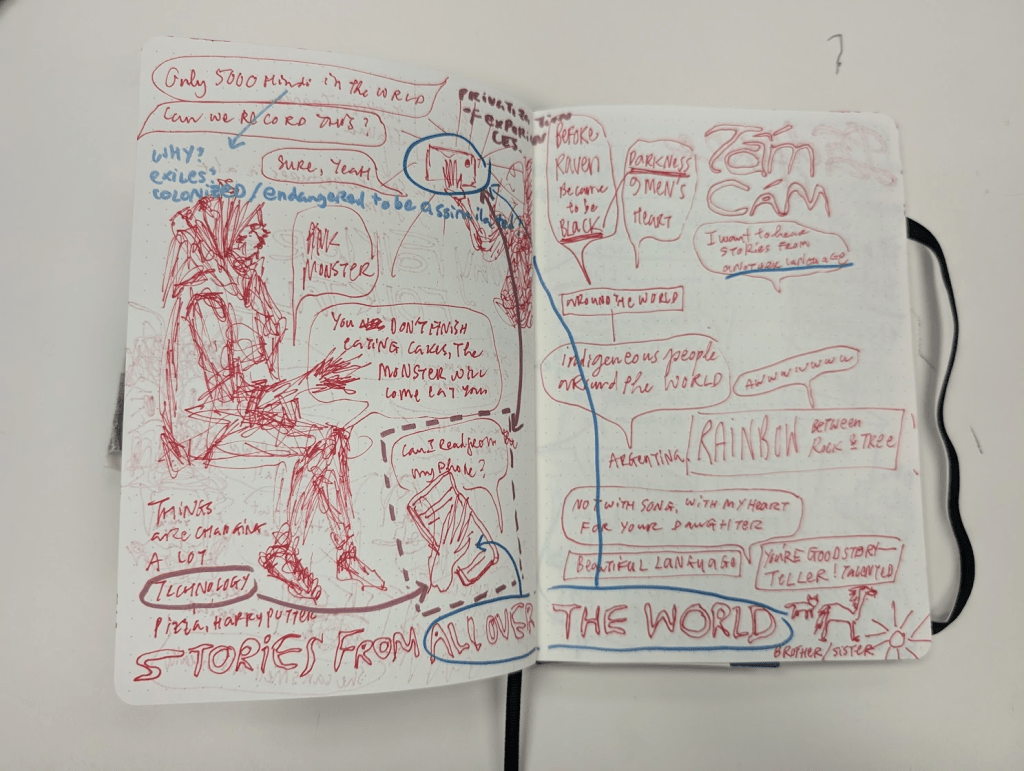 Only 5000 Hindi in the WORLD
Can we RECORD THIS?
Sure, Yeah
PRIVATIZATION
of experien
CES.
WHY?
exiles?
colonized/endangered to be assimilated?
PINK
MONSTER
You DON'T FINISH
eating cakes, the
MONSTER WILL
come eat you
Can I read from
my phone?
THINGS
are changing
A LOT
TECHNOLOGY
Pizza, HARRY PUTTER
STORIES FROM ALL OVER THE WORLD
BEFORE
RAVEN
Become
to be
BLACK
DARKNESS
9 MEN'S
HEART
TẤM
CÁM
I want to hear
STORIES FROM
another language
AROUND THE WORLD
indigeneous people
around the WORLD
Awwwwwww
ARGENTINA
RAINBOW BETWEEN
ROCK & TREE
NOT WITH SONG, WITH MY HEART
FOR YOUR DAUGHTER
Beautiful LANGUAGE
YOU'RE GOOD STORY-
TELLER! TALENTED
BROTHER/SISTER